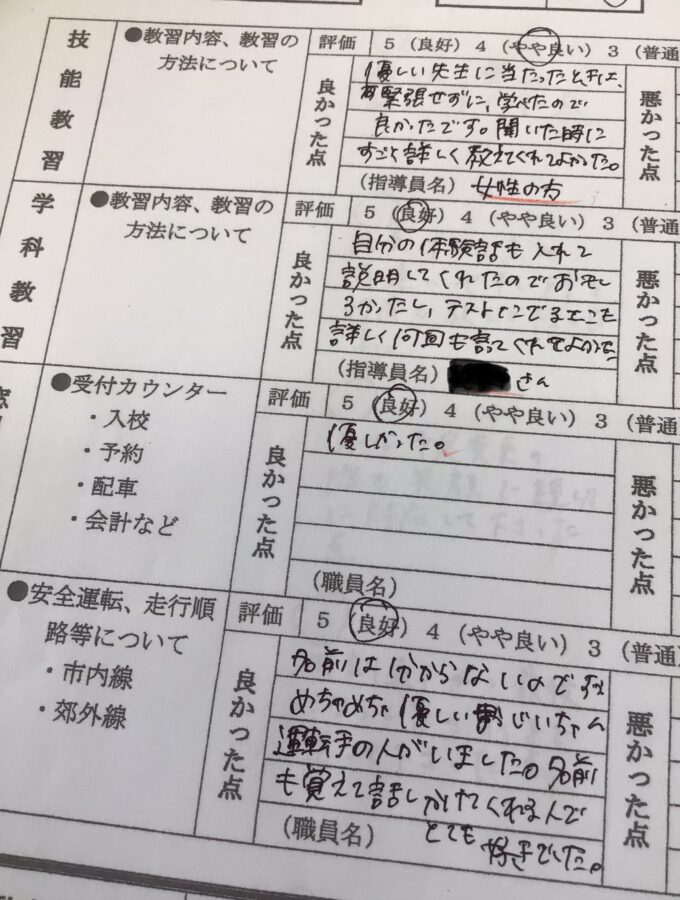 技能教習
●教習内容、教習の
方法について
評価 5（良好）4（やや良い）3（普通
良かった点
優しい先生に当たったときは、
緊張せずに、学べたので
良かたです。聞いた時に
すごく詳しく教えてくれてよかた。
（指導員名）女性の方
悪かった点
学科教習
●教習内容、教習の
方法について
評価 5（良好）4（やや良い）3（普通
良かった点
自分の体験話も入れて
説明してくれたのでおもし
ろかたし、テストとこでるとこも
詳しく何回も言ってくれてよかた
（指導員名） さん
悪かった点
●受付カウンター
・入校
・予約
・配車
・会計など
評価 5（良好）4（やや良い）3（普通
良かった点
優しかった。
（職員名）
悪かった点
●安全運転、走行順
路等について
・市内線
・郊外線
評価 5（良好）4（やや良い）3（普通
良かった点
名前は分からないのですが
めちゃめちゃ優しいじいちゃん
運転手の人がいました。名前
も覚えて話しかけてくれる人で
とても好きでした。
（職員名）
悪かった点